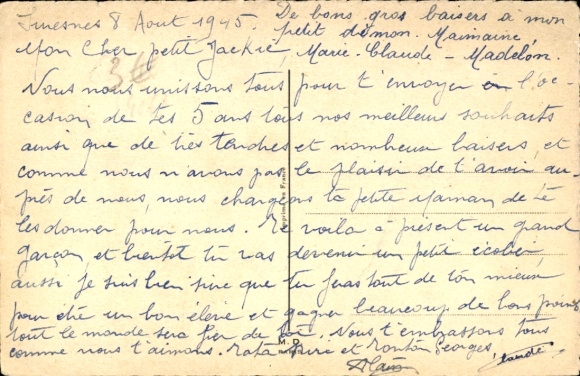 Suresnes 8 Aout 1945. De bons gros baisers à mon
petit démon. Mamaine,
Mon Cher petit Jackie, Marie-Claude - Madelon.
Nous nous unissons tous pour t'envoyer l'oc-
casion de tes 5 ans tous nos meilleurs souhaits
ainsi que de très tendres et nombreux baisers, et
comme nous n'avons pas le plaisir de t'avoir au-
près de nous, nous chargeons ta petite Maman de te
les donner pour nous. Te voila à présent un grand
garçon, et bientôt tu vas devenir un petit écolier,
aussi je suis bien sûre que tu feras tout de ton mieux
pour être un bon élève et gagner beaucoup de bons points
tout le monde sera fier de toi. Nous t'embrassons tous
comme nous t'aimons. Tata et Tonton Georges
Claude
Imprimé en France
M. D.